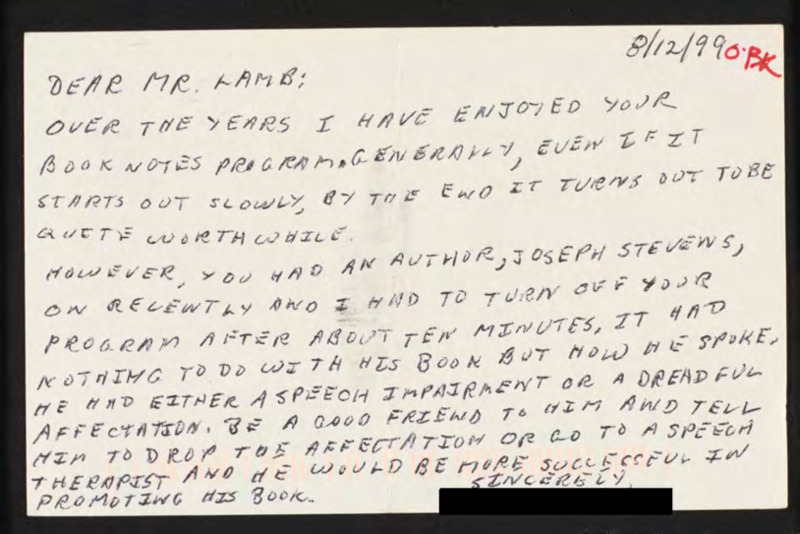 8/12/99 O.BK
DEAR MR. LAMB:
OVER THE YEARS I HAVE ENJOYED YOUR
BOOK NOTES PROGRAM. GENERALLY, EVEN IF IT
STARTS OUT SLOWLY, BY THE END IT TURNS OUT TO BE
QUITE WORTHWHILE.
HOWEVER, YOU HAD AN AUTHOR, JOSEPH STEVENS,
ON RECENTLY AND I HAD TO TURN OFF YOUR
PROGRAM AFTER ABOUT TEN MINUTES. IT HAD
NOTHING TO DO WITH HIS BOOK BUT HOW HE SPOKE.
HE HAD EITHER A SPEECH IMPAIRMENT OR A DREADFUL
AFFECTATION. BE A GOOD FRIEND TO HIM AND TELL
HIM TO DROP THE AFFECTATION OR GO TO A SPEECH
THERAPIST AND HE WOULD BE MORE SUCCESSFUL IN
PROMOTING HIS BOOK.
SINCERELY,